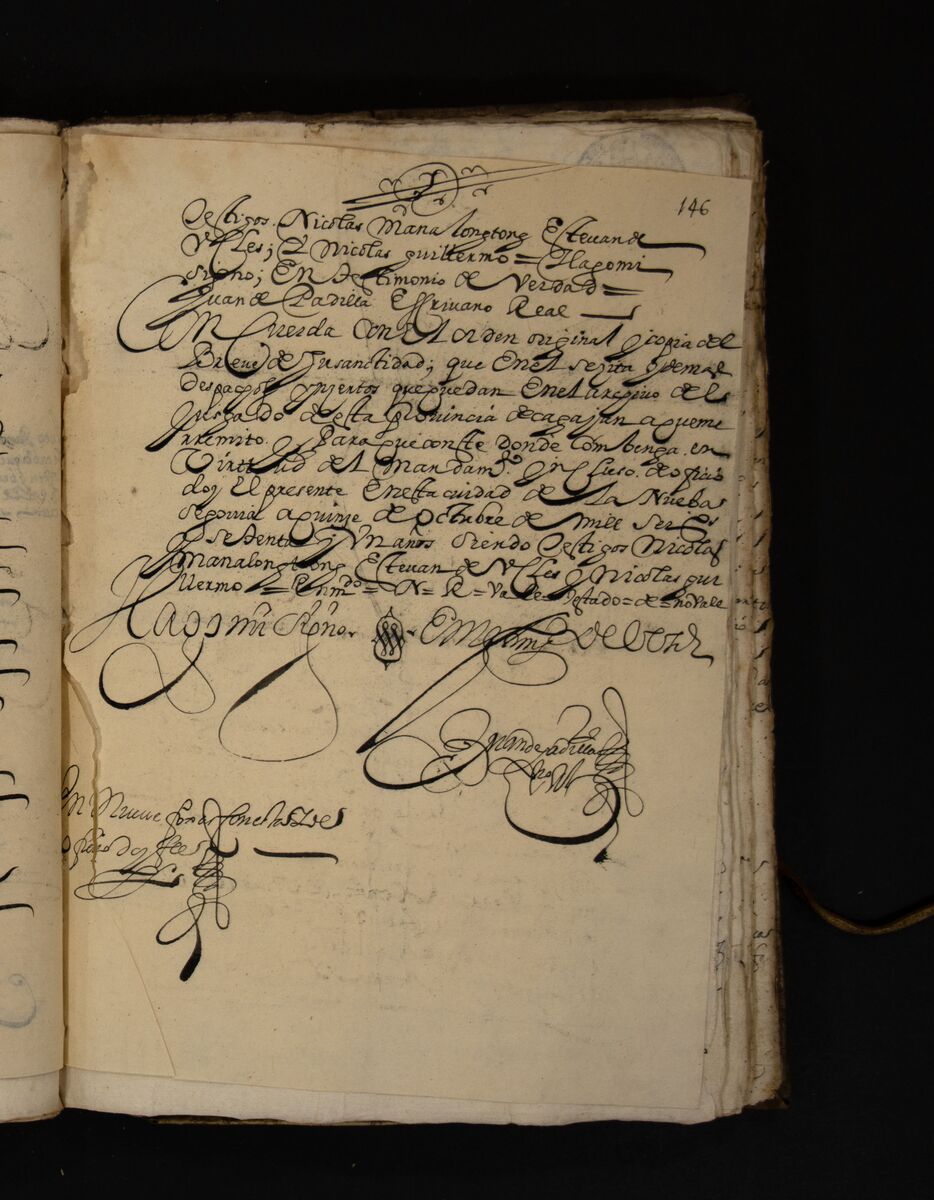 146
Testigos. Nicolas Manalongtong Estevan de
Vlles; Y Nicolas guillermo = Hago mi
signo; En testimonio de Verdad =
Juan de Padilla Escrivano Real
Concuerda Con el orden original y copia del
Breve de su sanctidad; que en el se sita y demas
despachos ynsertos que quedan En el archivo del
Jusgado de esta Provincia de cagayan a que me
rremito. y Para que conste donde combenga. en
Virttud del Mandam.to de oficio
doy El presente En esta ciudad de La Nueba
segovia a quinse de Octubre de mill seis.os
y setenta y Vn años siendo Testigos Nicolas
Manalongtong Estevan de Vlles y Nicolas gui
llermo = Enm.do = = R = Vale = testado = de = no vale
Hago mi signo En testim.o de Verd
Juan de Padilla
En nueve foxas con el